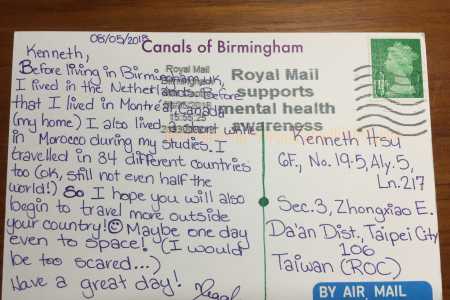 08/05/2018
Canals of Birmingham
Kenneth,
Before living in Birmingham, UK,
I lived in the Netherlands. Before
that I lived in Montréal, Canada
(my home) I also lived a short time
in Morocco during my studies. I
travelled in 34 different countries
too (OK, still not even half the
world!) So I hope you will also
begin to travel more outside
your country! Maybe one day
even to space! (I would
be too scared...)
Have a great day!
Royal Mail
Royal Mail
supports
mental health
awareness
Kenneth Hsu
6F., No. 19-5, Aly. 5,
Ln. 217
Sec. 3, Zhongxiao E.
Da'an Dist., Taipei City
106
Taiwan (ROC)
BY AIR MAIL